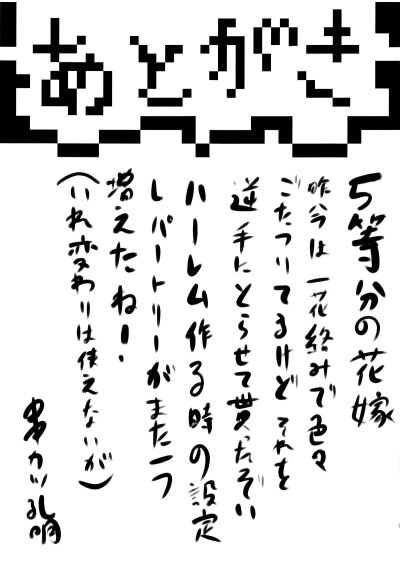 あとがき
5等分の花嫁
昨今は一花絡みで色々
ごたついてるけど それを
逆手にとらせて貰ったぞい
ハーレム作る時の設定
レパートリーがまた一つ
増えたねー!
(いれ変わりは使えないが)
串カツ孔明